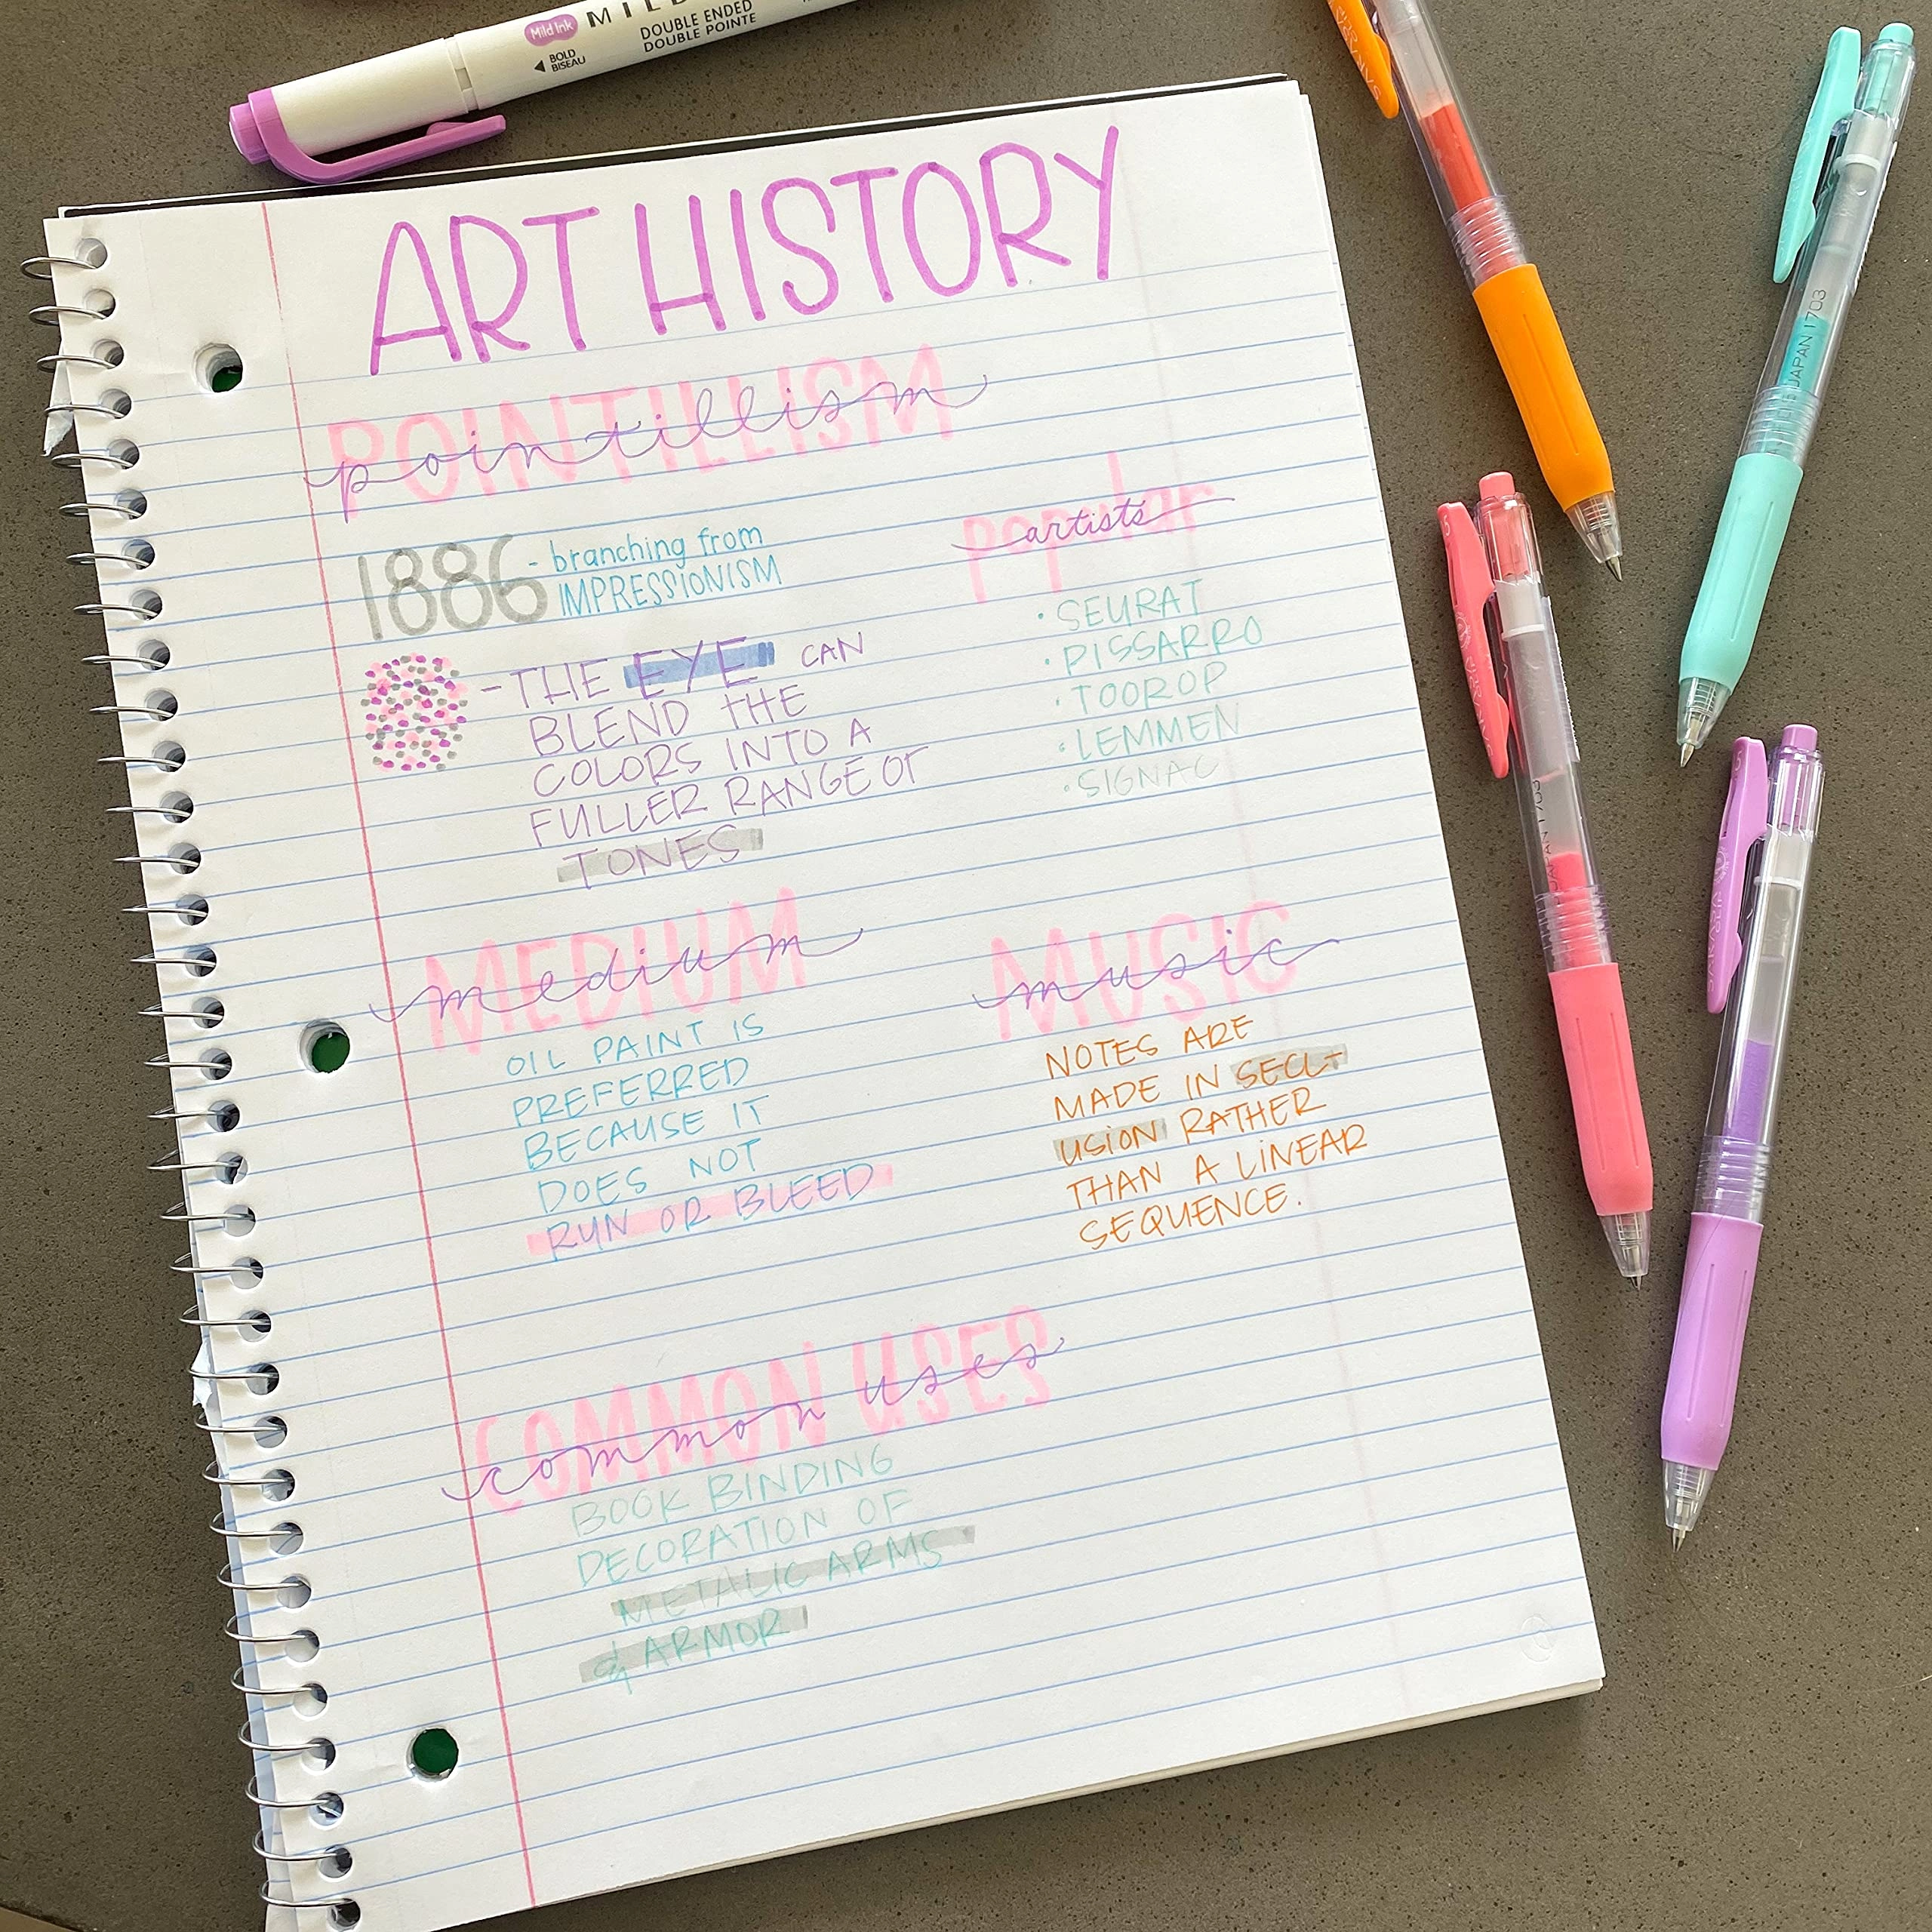 Mild Ink MILD
DOUBLE ENDED
DOUBLE POINTE
BOLD
BISEAU
ART HISTORY
POINTILLISM
pointillism
1886 - branching from
IMPRESSIONISM
- THE EYE CAN
BLEND THE
COLORS INTO A
FULLER RANGE OF
TONES
popular
artists
· SEURAT
· PISSARRO
· TOOROP
· LEMMEN
· SIGNAC
MEDIUM
medium
OIL PAINT IS
PREFERRED
BECAUSE IT
DOES NOT
RUN OR BLEED
MUSIC
music
NOTES ARE
MADE IN SECL-
USION RATHER
THAN A LINEAR
SEQUENCE.
COMMON USES
common uses
BOOK BINDING
DECORATION OF
METALIC ARMS
& ARMOR
JAPAN 1703